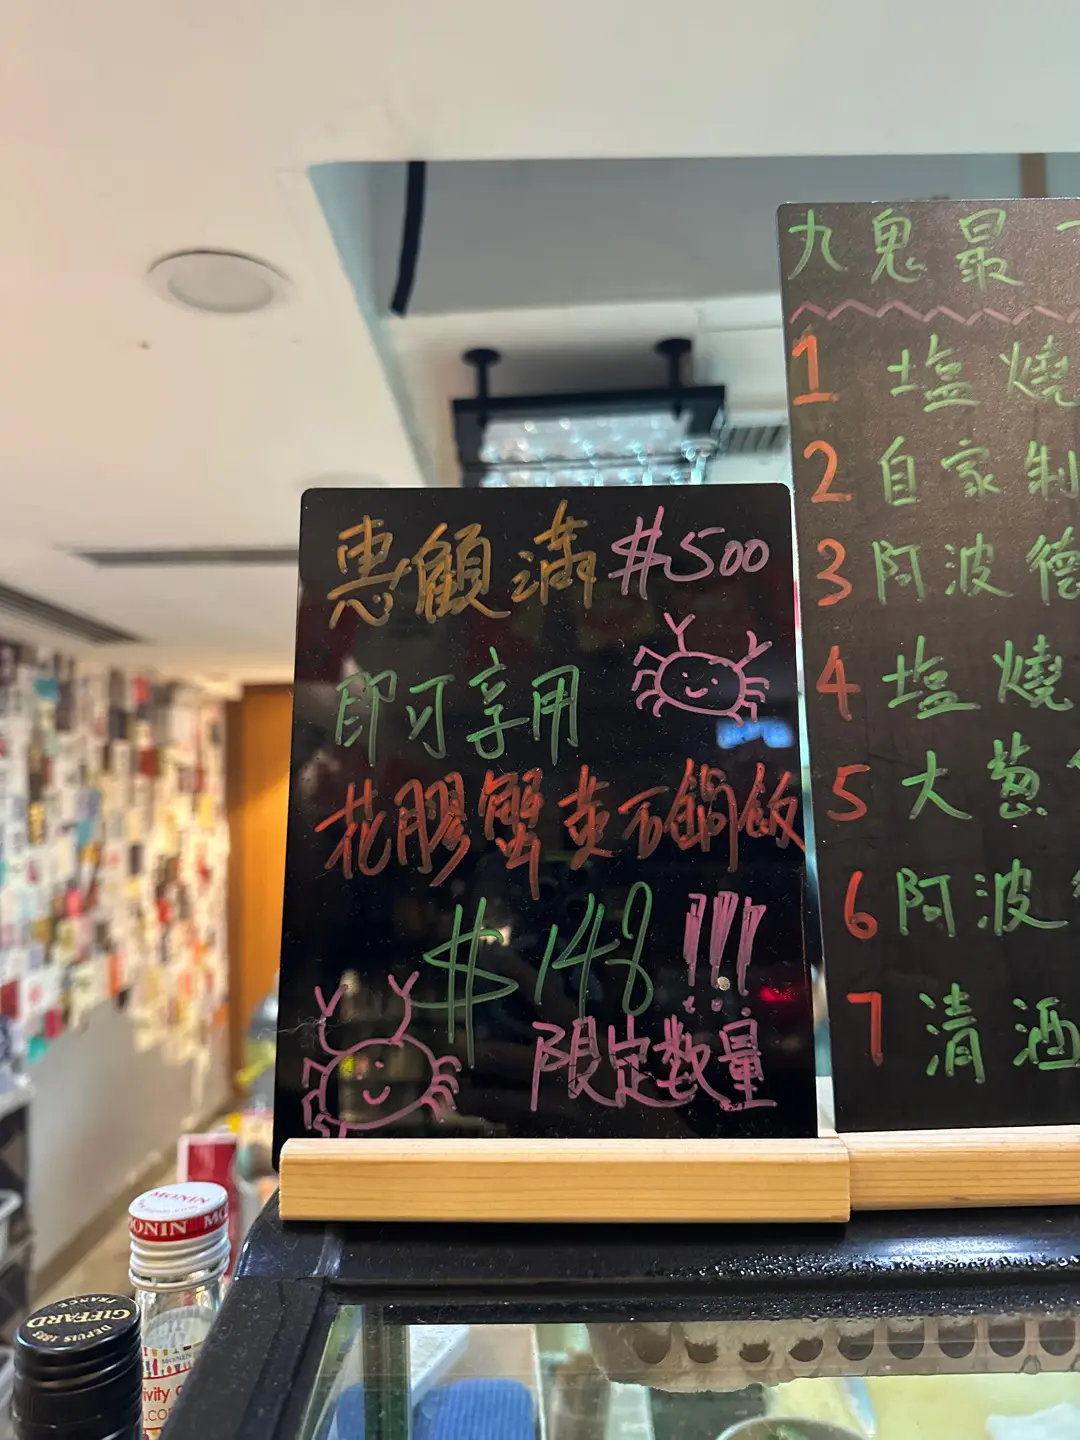 惠顧滿 $500
即可享用
花膠蟹黃石鍋飯
$148 !!!
限定數量
九鬼最
1 塩燒
2 自家制
3 阿波德
4 塩燒
5 大葱
6 阿波
7 清酒
MONIN
MONIN
GIFFARD
DEPUIS 1885
FRANCE
MONIN